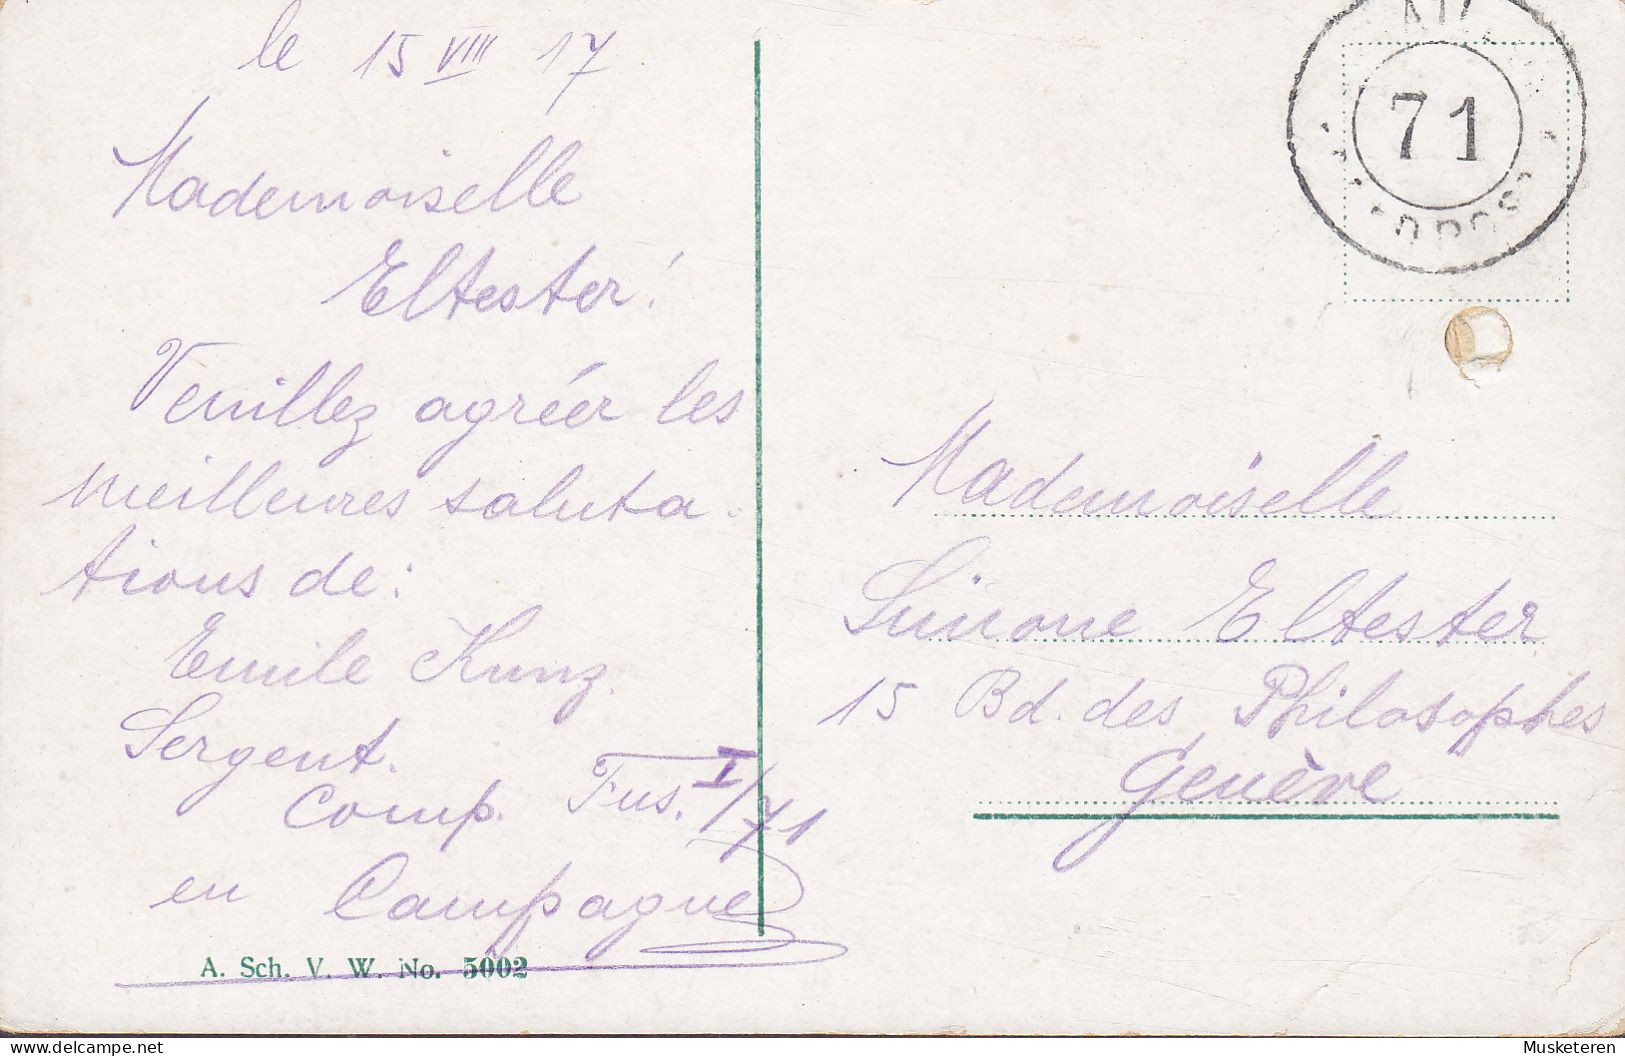 le 15 VIII 17
Mademoiselle
Eltester!
Veuillez agréer les
meilleures saluta-
tions de:
Emile Kunz.
Sergent.
Comp. Fus. I/71
en Campagne
A. Sch. V. W. No. 5002
71
Mademoiselle
Simone Eltester
15 Bd. des Philosophes
Genève
Musketeren
www.delcampe.net